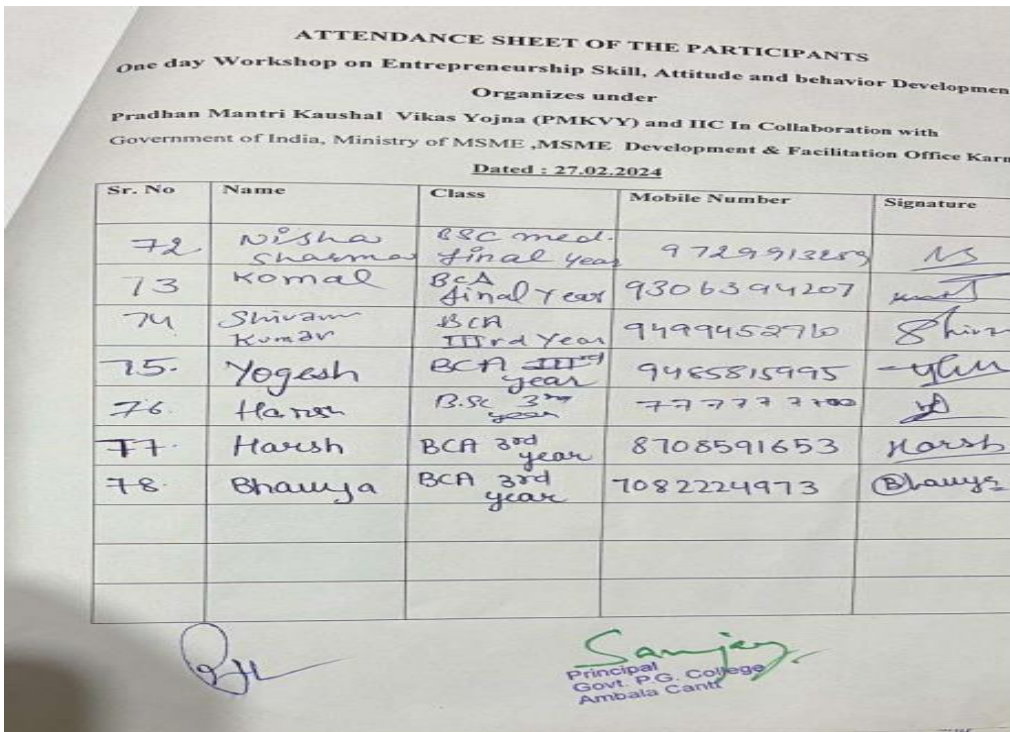 ATTENDANCE SHEET OF THE PARTICIPANTS
One day Workshop on Entrepreneurship Skill, Attitude and behavior Developmen
Organizes under
Pradhan Mantri Kaushal Vikas Yojna (PMKVY) and IIC In Collaboration with
Government of India, Ministry of MSME ,MSME Development & Facilitation Office Karn
Dated : 27.02.2024
Sr. No Name Class Mobile Number Signature
72. Nisha Sharma BSC med. final year 9729913289 NS
73 Komal BCA final Year 9306394207
74 Shivam Kumar BCA IIIrd Year 9499452710 Shiv
75. Yogesh BCA IIIrd year 9485815995
76. B.Sc 3rd year
77. Harsh BCA 3rd year 8708591653 Harsh
78. Bhavya BCA 3rd year 7082224973 Bhavya
Sanjay
Principal
Govt. P.G. College
Ambala Cantt